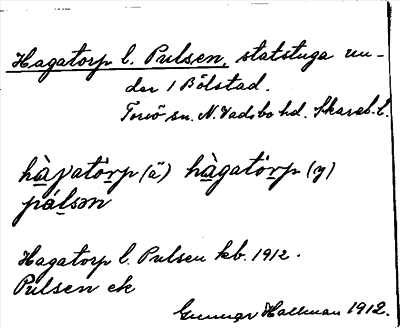 Hagatorp l. Pulsen, statstuga un-
der 1 Bölstad.
Torsö sn. N. Vadsbo hd. Skarab. l.
hàgatò̱rp (ä) hàgatò̱rp (y)
páḻsən
Hagatorp l. Pulsen kb. 1912.
Pulsen ek
Gunnar Hallman 1912.